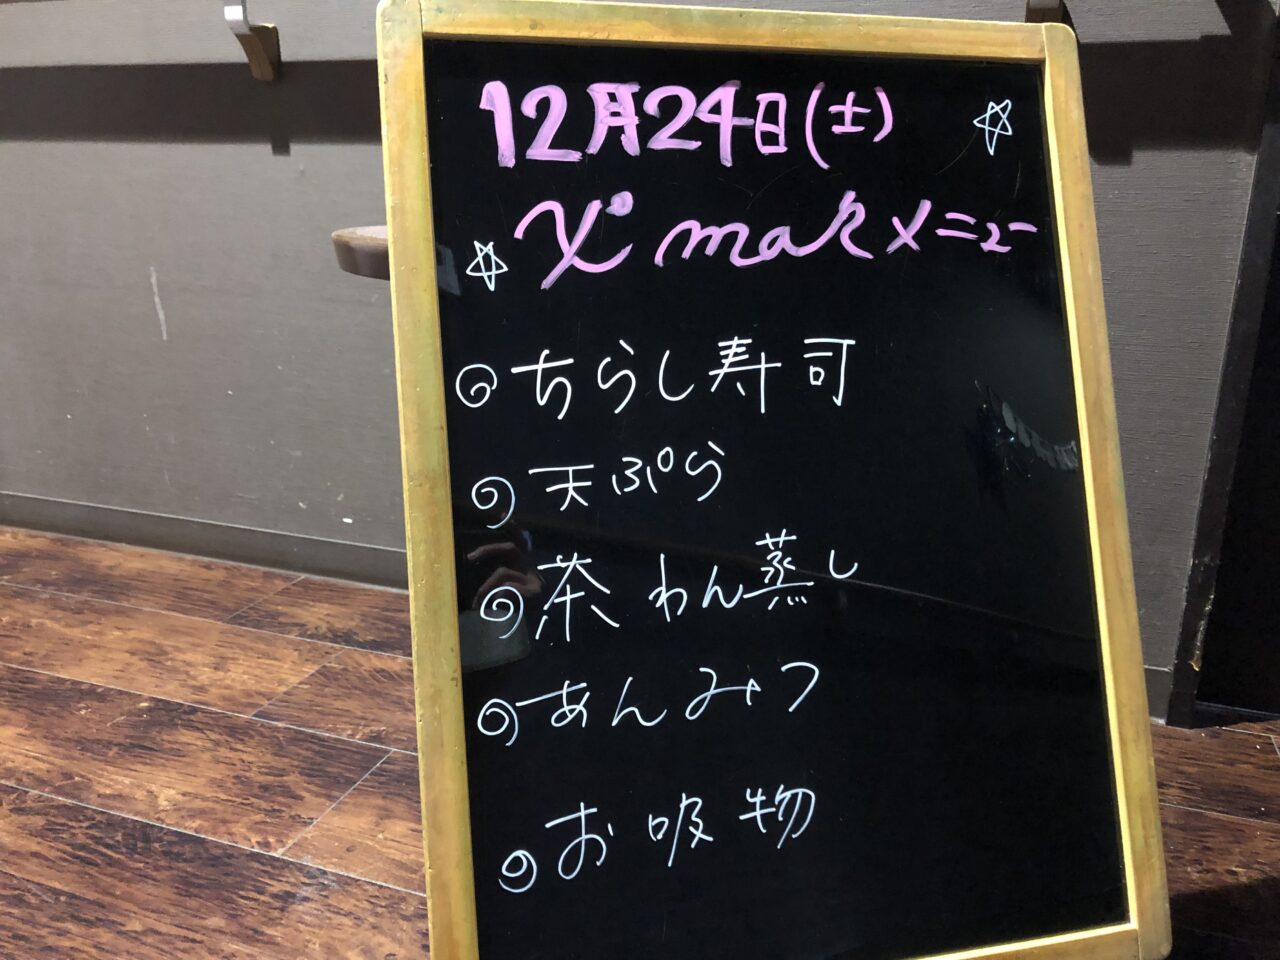 12月24日(土)
X'maｓ メニュー
ちらし寿司
天ぷら
茶わん蒸し
あんみつ
お吸物